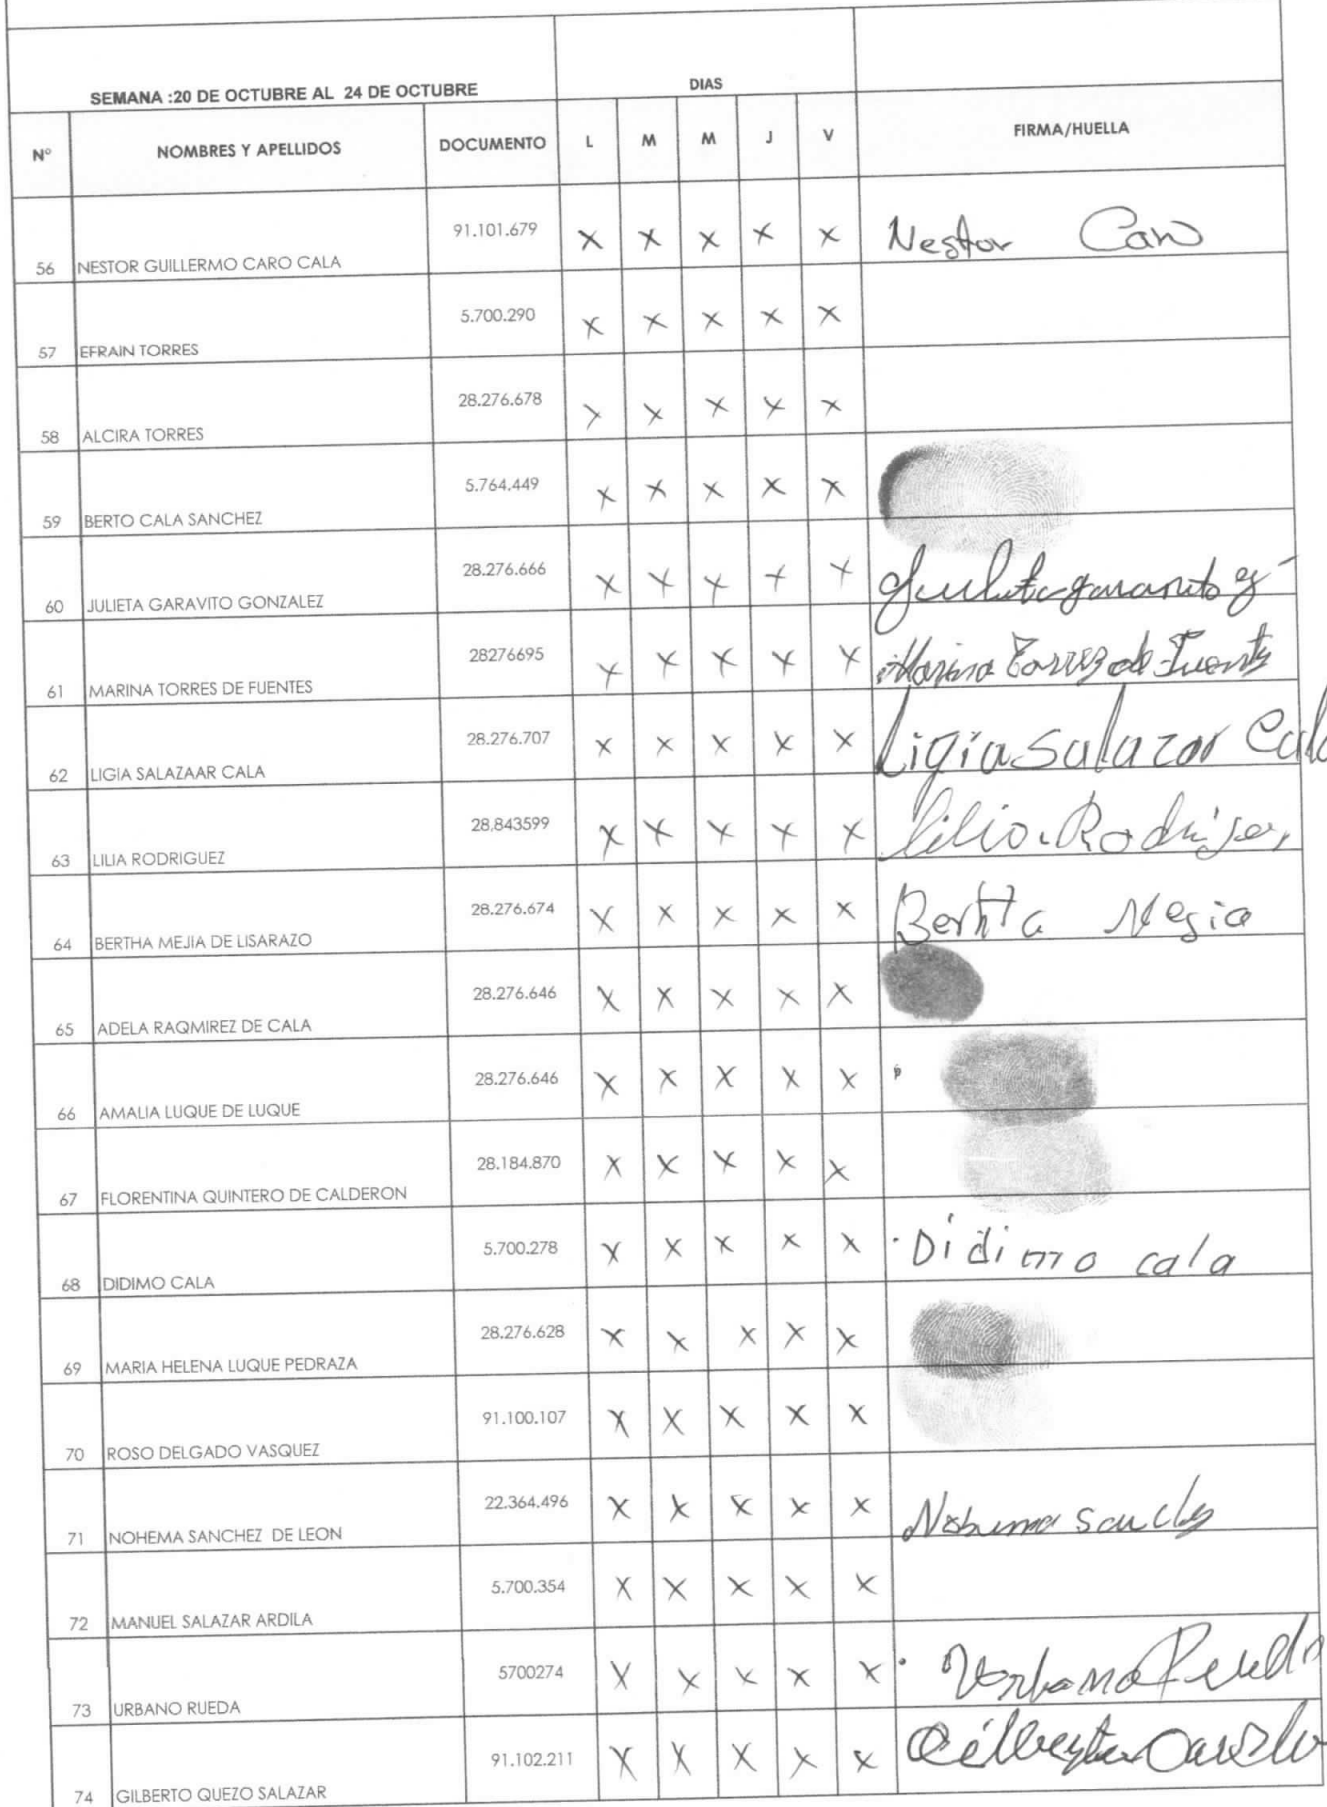 SEMANA :20 DE OCTUBRE AL 24 DE OCTUBRE DIAS
N° NOMBRES Y APELLIDOS DOCUMENTO L M M J V FIRMA/HUELLA
56 NESTOR GUILLERMO CARO CALA 91.101.679 X X X X X Nestor Caro
57 EFRAIN TORRES 5.700.290 X X X X X
58 ALCIRA TORRES 28.276.678 X X X X X
59 BERTO CALA SANCHEZ 5.764.449 X X X X X
60 JULIETA GARAVITO GONZALEZ 28.276.666 X X X X X
61 MARINA TORRES DE FUENTES 28276695 X X X X X Marina Torres de Fuentes
62 LIGIA SALAZAAR CALA 28.276.707 X X X X X Ligia Salazar Cala
63 LILIA RODRIGUEZ 28.843599 X X X X X Lilia Rodriguez
64 BERTHA MEJIA DE LISARAZO 28.276.674 X X X X X Berhta Mesia
65 ADELA RAQMIREZ DE CALA 28.276.646 X X X X X
66 AMALIA LUQUE DE LUQUE 28.276.646 X X X X X
67 FLORENTINA QUINTERO DE CALDERON 28.184.870 X X X X X
68 DIDIMO CALA 5.700.278 X X X X X Didimo cala
69 MARIA HELENA LUQUE PEDRAZA 28.276.628 X X X X X
70 ROSO DELGADO VASQUEZ 91.100.107 X X X X X
71 NOHEMA SANCHEZ DE LEON 22.364.496 X X X X X
72 MANUEL SALAZAR ARDILA 5.700.354 X X X X X
73 URBANO RUEDA 5700274 X X X X X
74 GILBERTO QUEZO SALAZAR 91.102.211 X X X X X